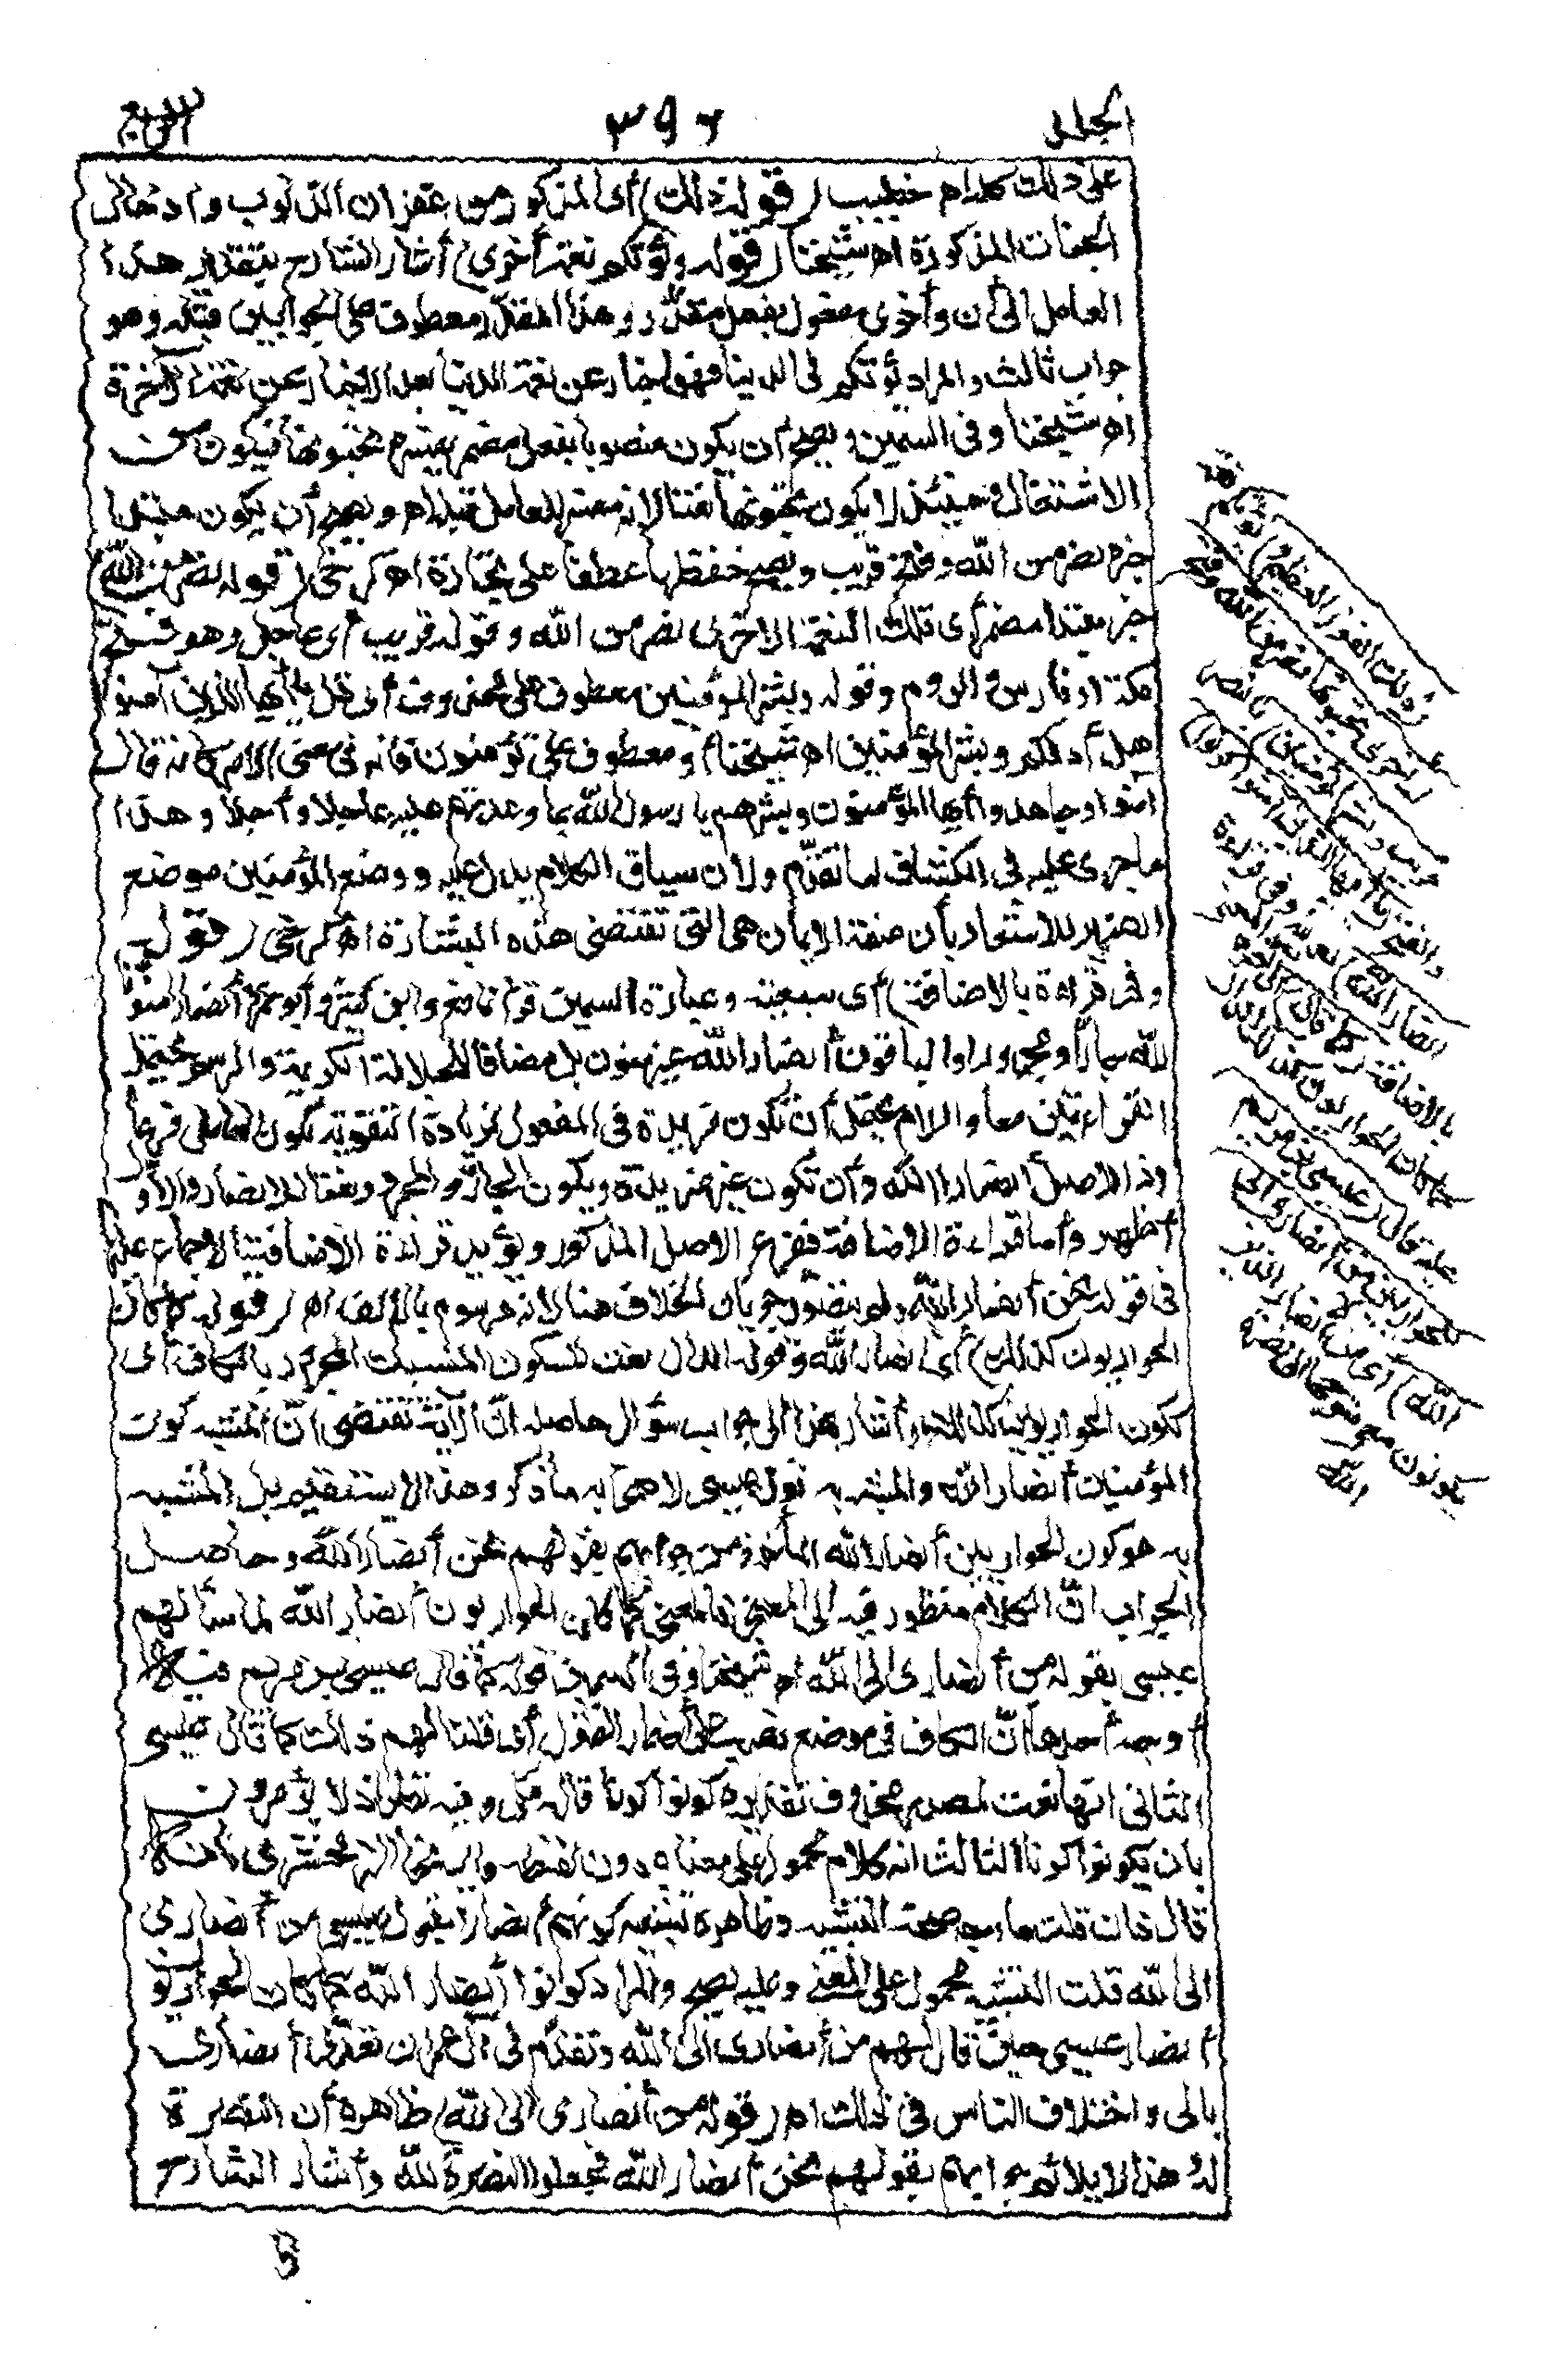 الجلد
٣٩٦
الرابع
على ذلك كلام اه خطيب (قوله ذلك) أى المذكور من غفران الذنوب وادخال
الجنات المذكورة اه شيخنا (قوله ويؤتكم نعمة أخرى) أشار الشارح بتقدير هذا
العامل الى أن وأخرى مفعول بفعل مقدّر وهذا المقدّر معطوف على الجوابين قبله وهو
جواب ثالث والمراد يؤتكم فى الدنيا فهو اخبار عن نعمة الدنيا بعد الاخبار عن نعمة الآخرة
اه شيخنا وفى السمين ويصح أن يكون منصوبا بفعل مضمر يفسره تحبونها فيكون من
الاشتغال وحينئذ لا يكون تحبونها نعتا لانه مفسر للعامل قبله اه ويصح أن يكون مبتدأ
خبره نصر من الله وفتح قريب ويصح خفضها عطفا على تجارة اه كرخى (قوله نصر من الله)
خبر مبتدا مضمر أى تلك النعمة الاخرى نصر من الله وقوله قريب أى عاجل وهو فتح
مكة أو فارس والروم وقوله وبشر المؤمنين معطوف على محذوف أى قل يا أيها الذين آمنوا
هل أدلكم وبشر المؤمنين اه شيخنا أو معطوف على تؤمنون فانه فى معنى الامر كانه قال
آمنوا وجاهدوا أيها المؤمنون وبشرهم يا رسول الله بما وعدتهم عليه عاجلا وآجلا وهذا
ما جرى عليه فى الكشاف لما تقدّم ولان سياق الكلام يدل عليه ووضع المؤمنين موضع
الضمير للاشعار بأن صفة الايمان هى التى تقتضى هذه البشارة اه كرخى (قوله
وفى قراءة بالاضافة) أى سبعية وعبارة السمين قرأ نافع وابن كثير وأبو عمرو أنصارا منوّنا
لله جارّا ومجرورا والباقون أنصار الله غير منون بل مضافا للجلالة الكريمة والرسم يحتمل
القراءتين معا واللام يحتمل أن تكون مزيدة فى المفعول لزيادة التقوية لكون العامل فرعا
اذ الاصل أنصارا الله وأن تكون غير مزيدة ويكون الجارّ والمجرور نعتا لانصارا والاول
أظهر وأما قراءة الاضافة ففرع الاصل المذكور ويؤيد قراءة الاضافة الاجماع عليها
فى قوله نحن أنصار الله ولم يتصوّر جريان الخلاف هنا لانه مرسوم بالالف اه (قوله كما كان
الحواريون كذلك) أى أنصار الله وقوله الدال نعت للسكون المنسبك المجرور بالكاف أى
ككون الحواريين كذلك أشار بهذا الى جواب سؤال حاصله انّ الآية تقتضى انّ المشبه كون
المؤمنين أنصار الله والمشبه به قول عيسى لاصحابه ما ذكر وهذا لا يستقيم بل المشبه
به هو كون الحواريين أنصار الله المأخوذ من جوابهم بقولهم نحن أنصار الله وحاصل
الجواب انّ الكلام منظور فيه الى المعنى فالمعنى كما كان الحواريون أنصار الله لما سألهم
عيسى بقوله من أنصارى الى الله اه شيخنا وفى السمين قوله كما قال عيسى بن مريم فيه
أوجه أحدها انّ الكاف فى موضع نصب على اضمار القول أى قلنا لهم ذلك كما قال عيسى
الثانى انها نعت لمصدر محذوف تقديره كونوا كونا قاله مكى وفيه نظر اذ لا يؤمرون
بان يكونوا كونا الثالث انه كلام محمول على معناه دون لفظه واليه نحا الزمخشرى فانه
قال فان قلت ما وجه صحة التشبيه وظاهره تشبيه كونهم أنصارا بقول عيسى من أنصارى
الى الله قلت التشبيه محمول على المعنى وعليه يصح والمراد كونوا أنصار الله كما كان الحواريون
أنصار عيسى حين قال لهم من أنصارى الى الله وتقدّم فى آل عمران تعدّى أنصارى
بالى واختلاف الناس فى ذلك اه (قوله من أنصارى الى الله) ظاهره أن النصرة
له وهذا لا يلائم جوابهم بقولهم نحن أنصار الله فجعلوا النصرة لله وأشار الشارح
(ذلك الفوز العظيم و) يؤتكم نعمة
(أخرى تحبونها نصر من الله وفتح
قريب وبشر المؤمنين) بالنصر
والفتح (يا أيها الذين آمنوا كونوا
أنصار الله) لدينه وفى قراءة
بالاضافة (كما قال) الخ المعنى
كما كان الحواريون كذلك الدال
عليه قال (عيسى بن مريم
للحواريين من أنصارى الى
الله) أى من الانصار الذين
يكونون معى متوجها الى نصرة
الله